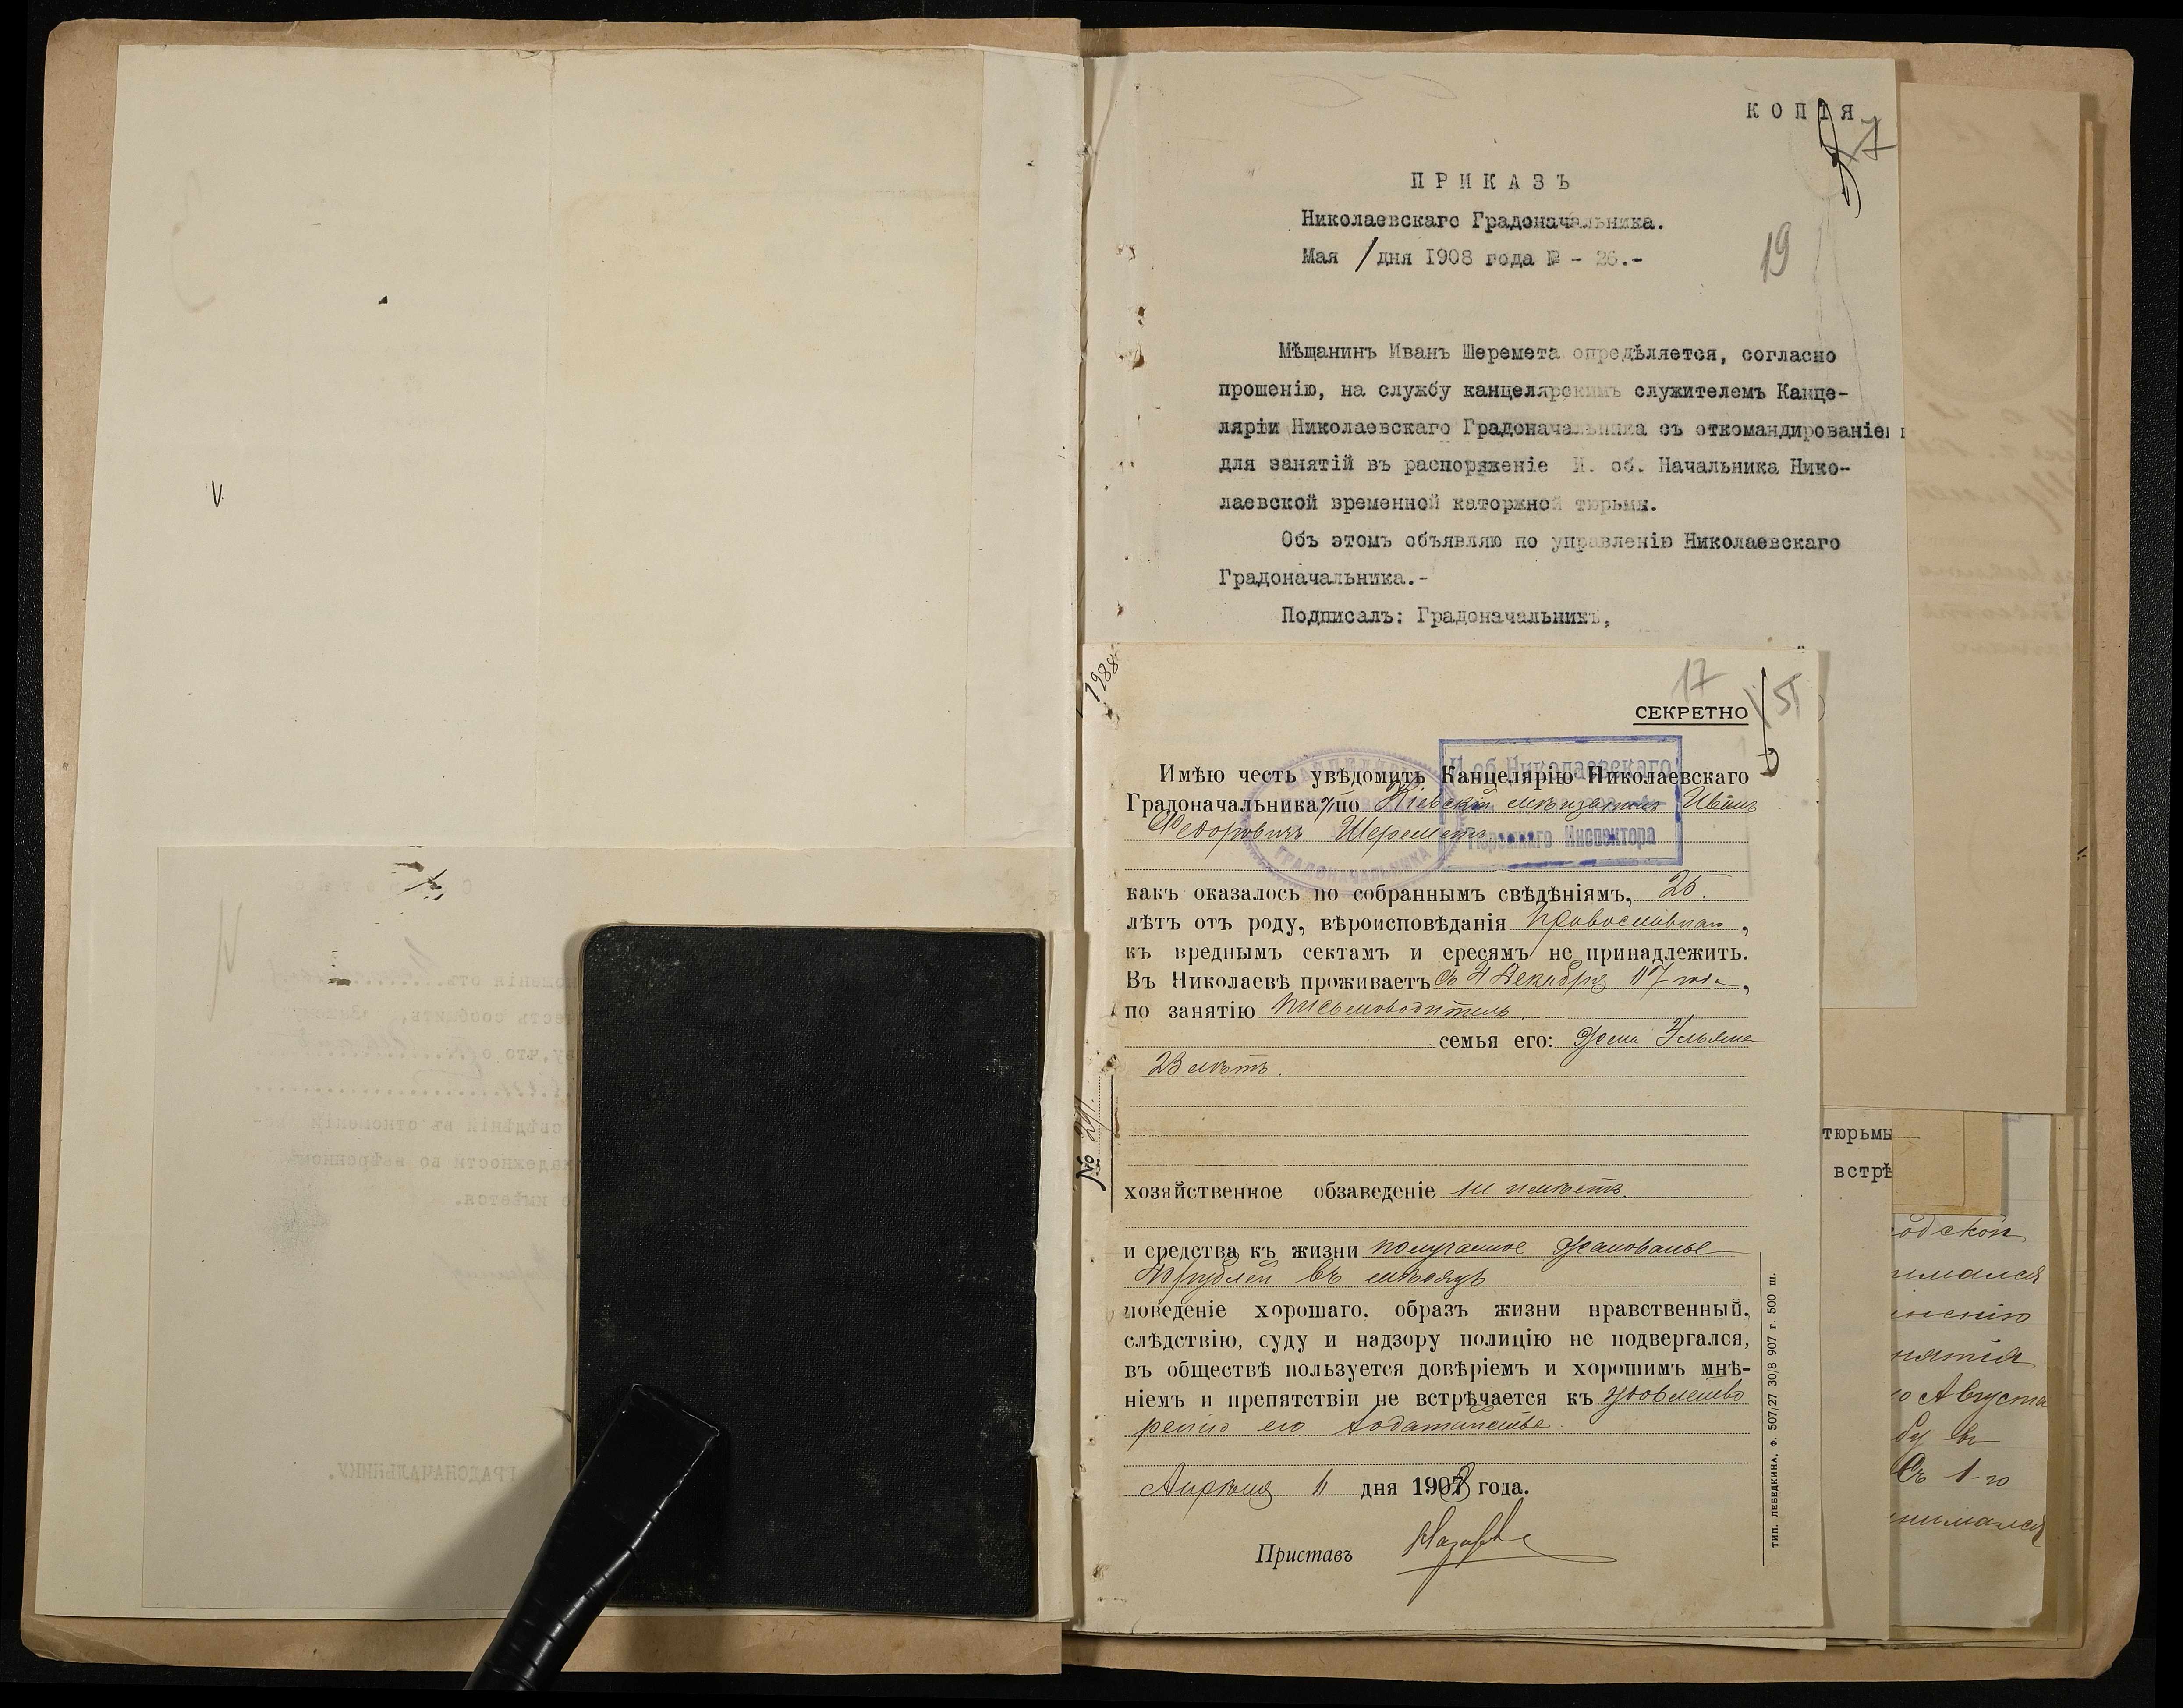 КОПІЯ
7
ПРИКАЗЪ
Николаевскаго Градоначальника.
Мая 1 дня 1908 года № - 26.-
19
Мѣщанинъ Иванъ Шеремета опредѣляется, согласно
прошенію, на службу канцелярскимъ служителемъ Канце-
ляріи Николаевскаго Градоначальника съ откомандированіе
для занятій въ распоряженіе И. об. Начальника Нико-
лаевской временной каторжной тюрьмы.
Объ этомъ объявляю по управленію Николаевскаго
Градоначальника.-
Подписалъ: Градоначальникъ,
17
СЕКРЕТНО
Имѣю честь увѣдомить Канцелярію Николаевскаго
Градоначальника, что Кіевскій мѣщанинъ Иванъ
Федоровичъ Шеремета
И об Николаевскаго
Тюремнаго Инспектора
КАНЦЕЛЯРІЯ
ГРАДОНАЧАЛЬНИКА
какъ оказалось по собраннымъ свѣдѣніямъ, 25.
лѣтъ отъ роду, вѣроисповѣданія православнаго,
къ вреднымъ сектамъ и ересямъ не принадлежитъ.
Въ Николаевѣ проживаетъ съ 4 Декабря 07 года,
по занятію письмоводитель.
семья его: жена Ульяна
23 лѣтъ.
№ 291.
хозяйственное обзаведеніе не имѣетъ.
и средства къ жизни получаемое жалованье
40 рублей въ мѣсяцъ
поведеніе хорошаго, образъ жизни нравственный,
слѣдствію, суду и надзору полиціи не подвергался,
въ обществѣ пользуется довѣріемъ и хорошимъ мнѣ-
ніемъ и препятствіи не встрѣчается къ удовлетво
ренію его ходатайства.
Апрѣля 11 дня 1908 года.
Приставъ
ТИП. ЛЕБЕДКИНА. Ф. 507/27 30/8 907 г. 500 ш.
тюрьмы
встрѣ
одской
нимался
нятія
го Августа
бу въ
Съ 1-го
нимался